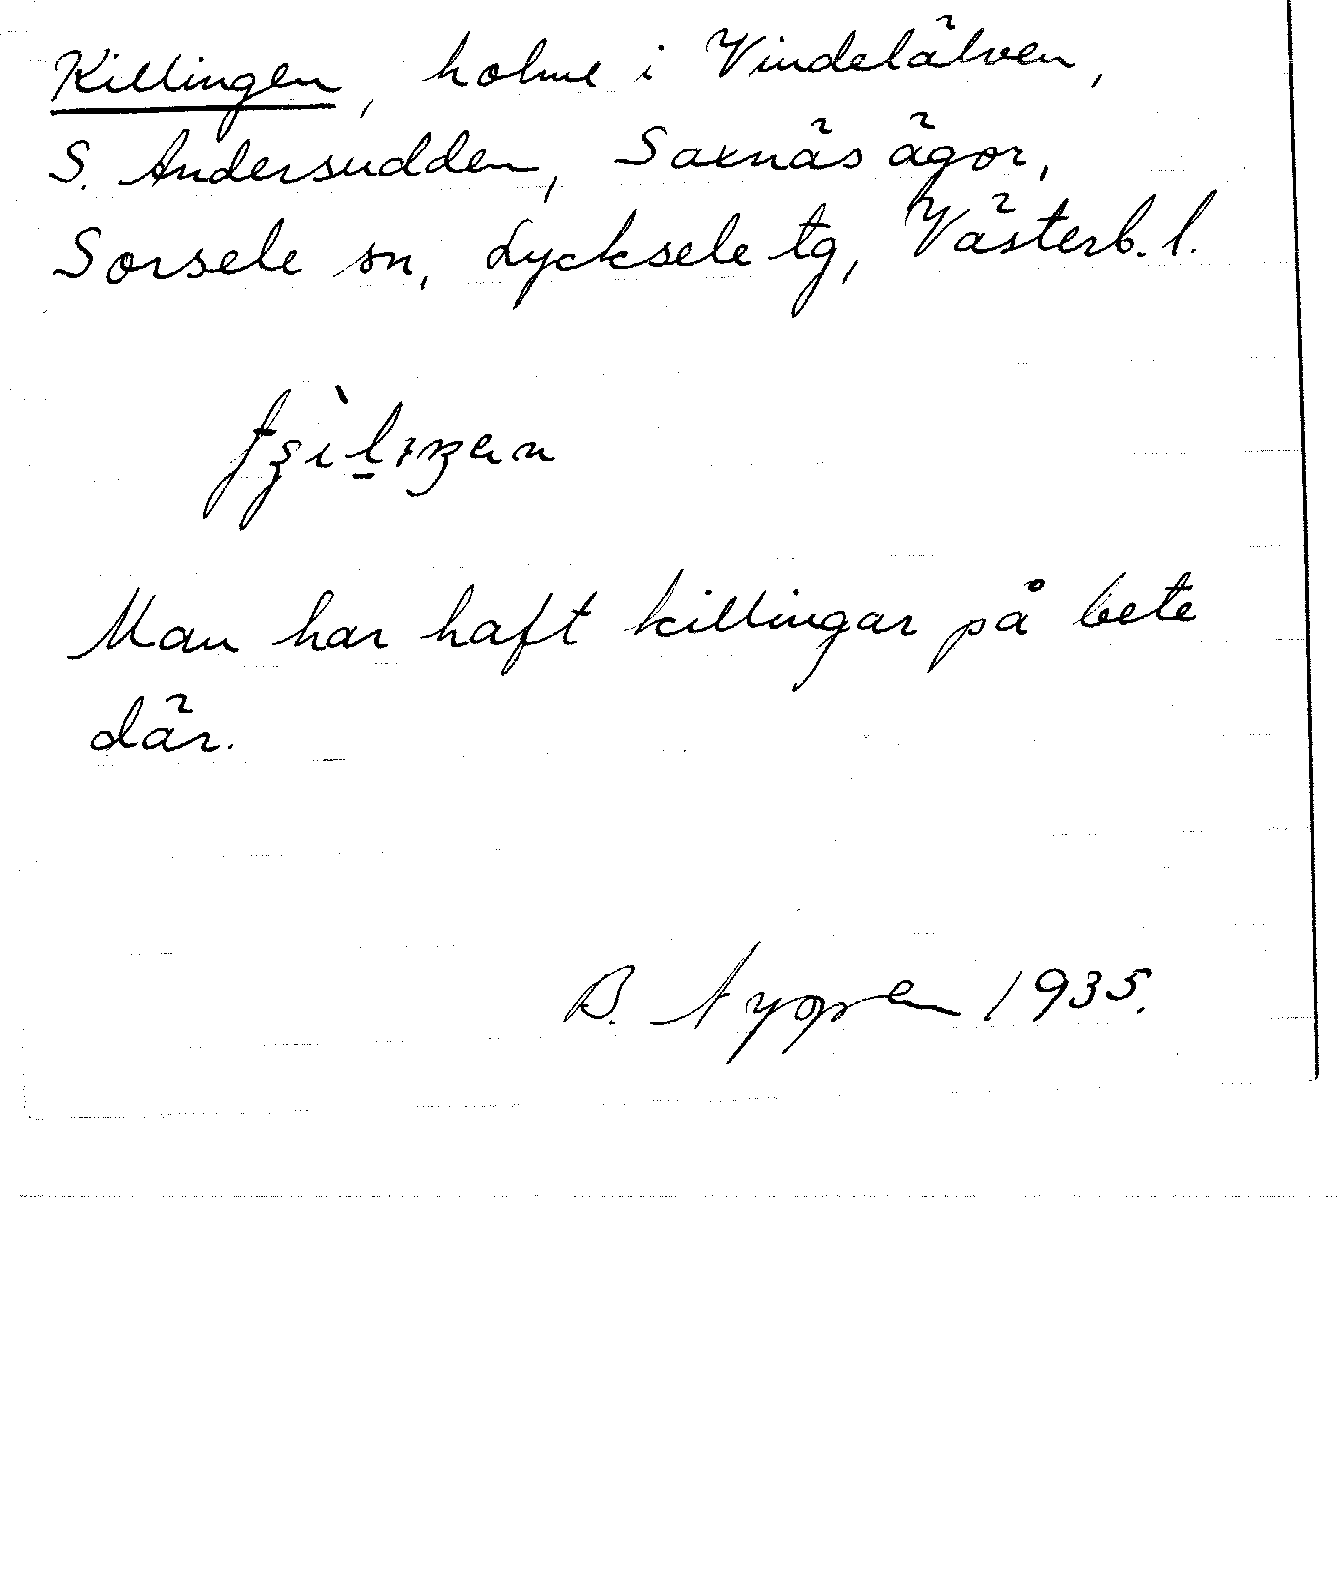 Killingen, holme i Vindelälven,
S. Andersudden, Saxnäs ägor,
Sorsele sn, Lycksele tg, Västerb. l.
Man har haft killingar på bete
där.
B. Nygren 1935.